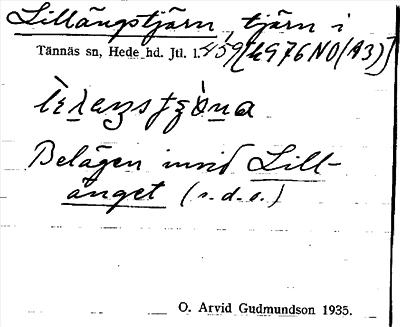 Lillängstjärn, tjärn i
Tännäs sn, Hede hd. Jtl. l. 459 [469 76 NO (A3)]
Belägen invid Lill-
änget (s.d.o.)
O. Arvid Gudmundson 1935.